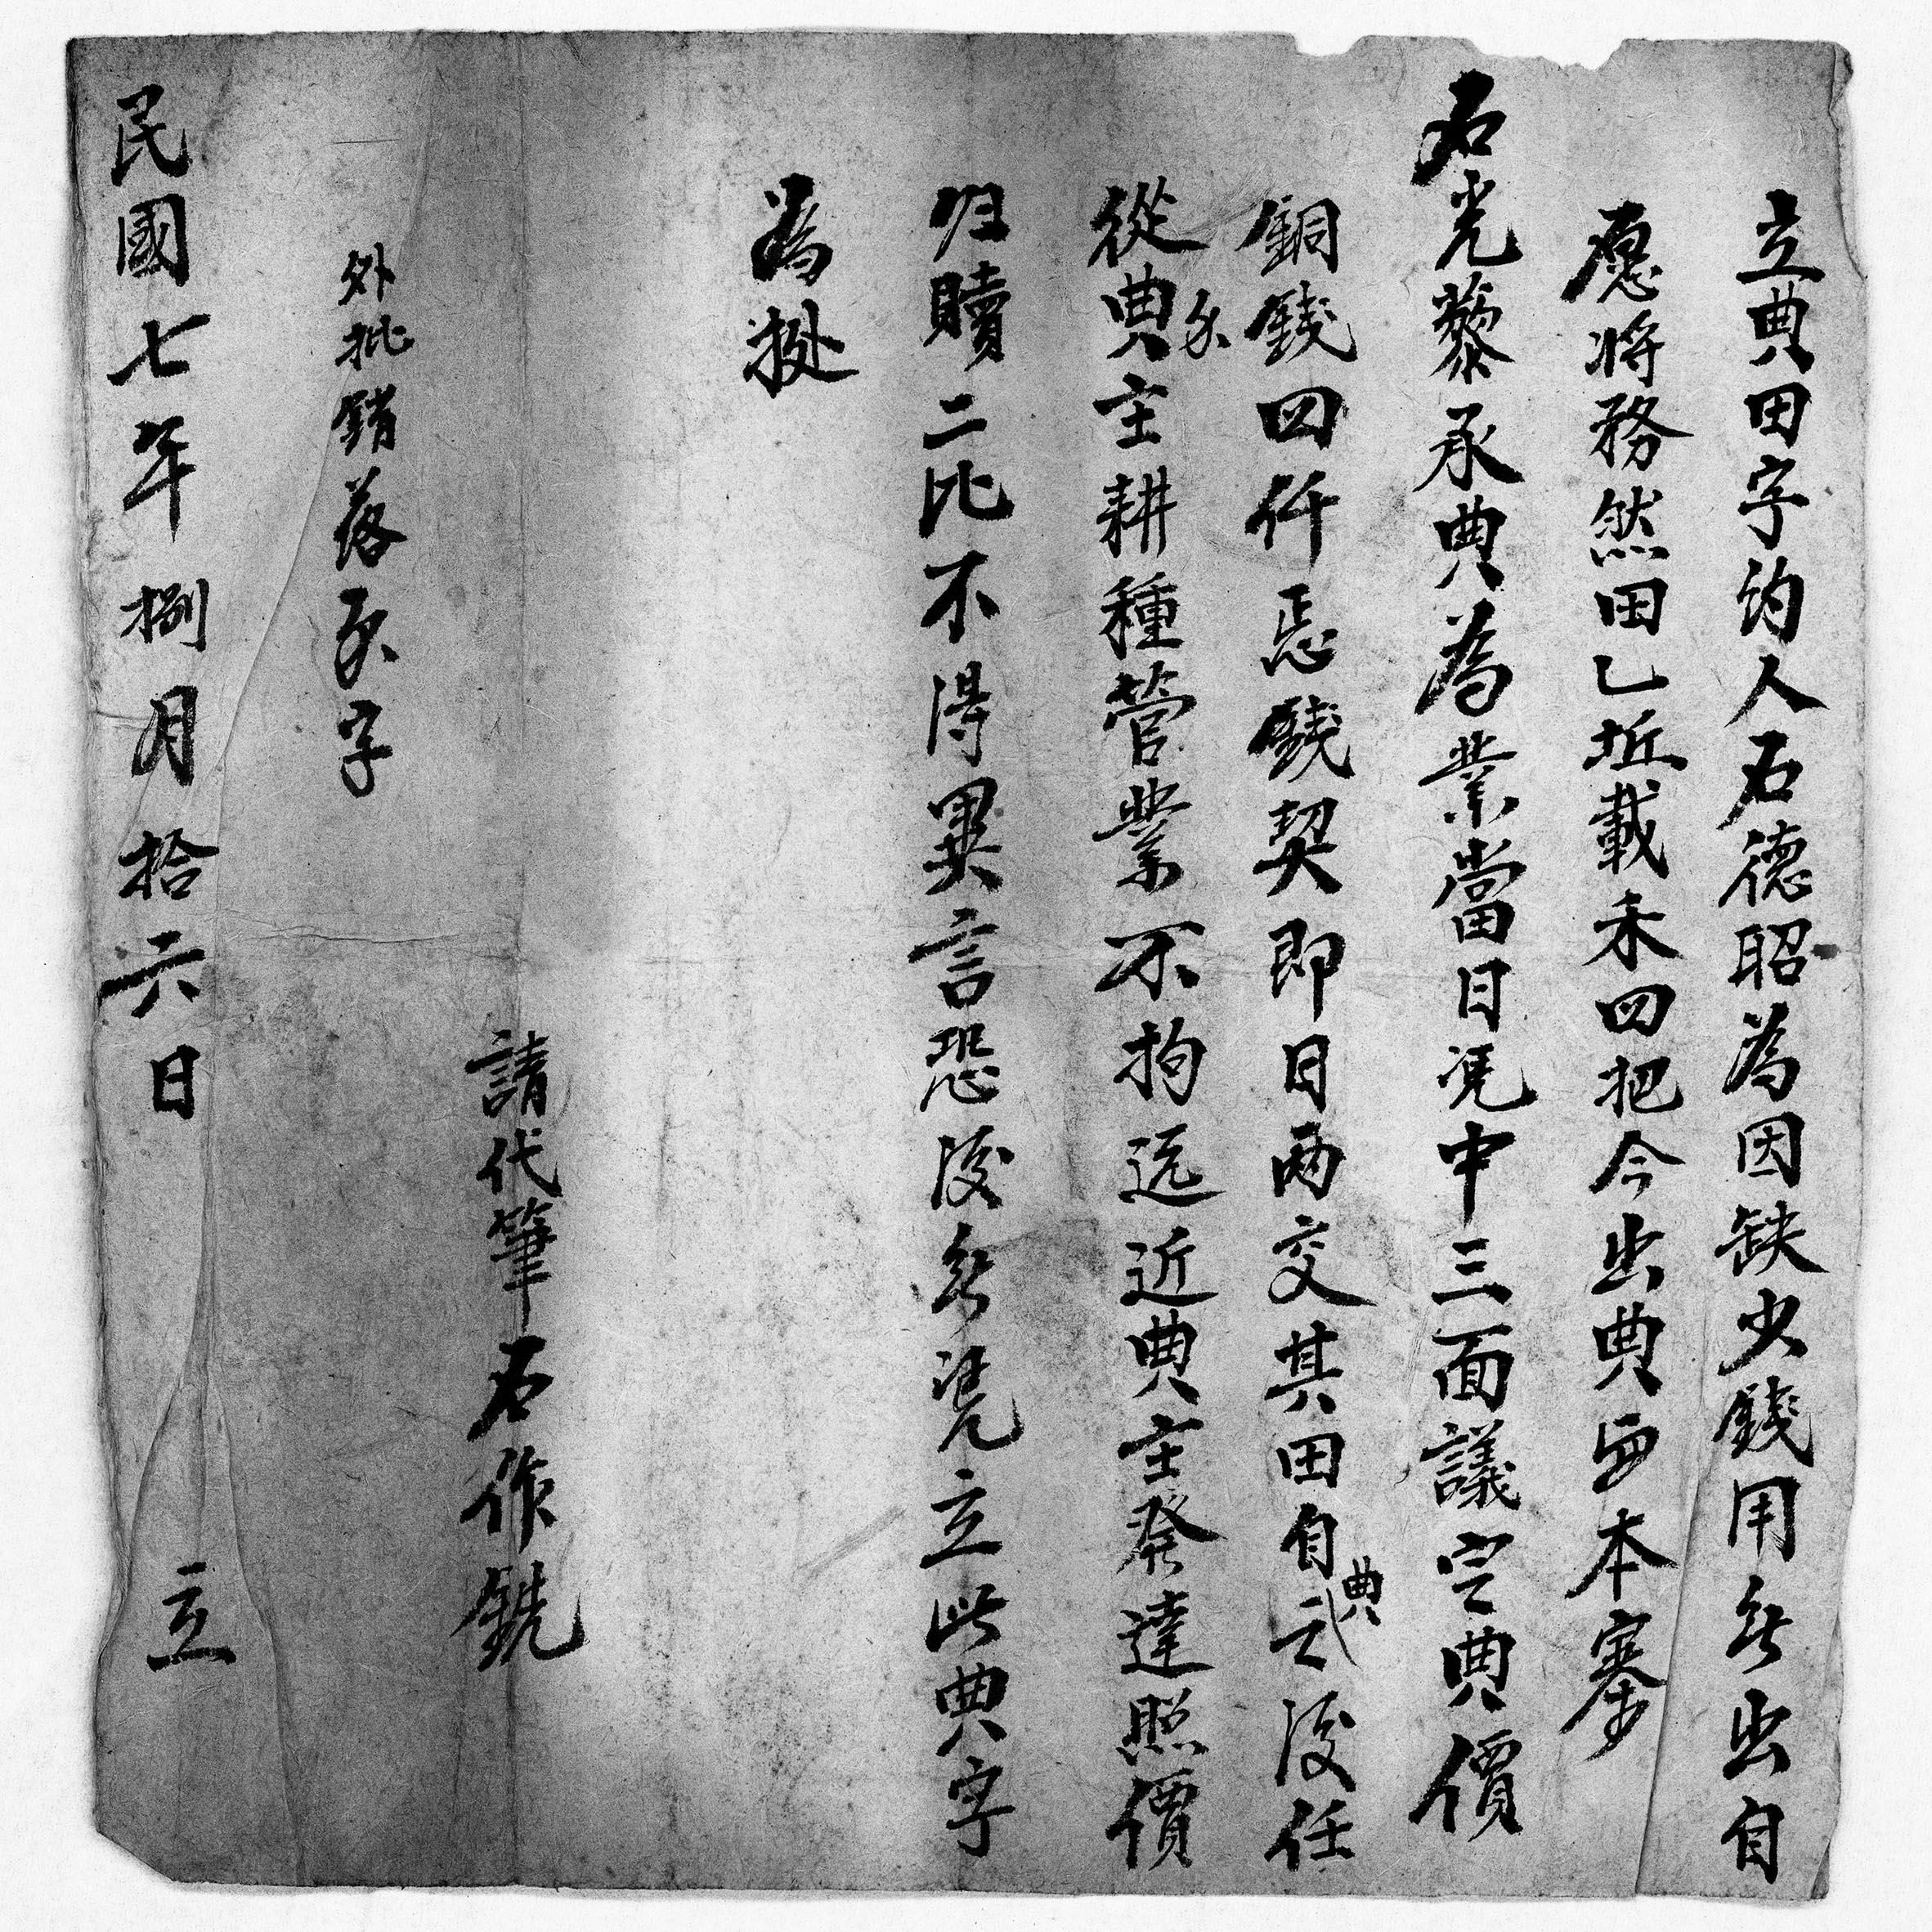 立典田字约人石德昭為因缺少錢用無出自
愿将務然田乙坵載禾四把今出典與本寨
石光藜承典為業當日凭中三面議定典價
銅錢四仟忘錢契即日两交其田自典之後任
從典主耕種管業不拘远近典主發達照價
归贖二比不得異言恐後無凴立此典字
為㨿
請代筆石作銑
外批銷落糸字
民國七年捌月拾六日 立